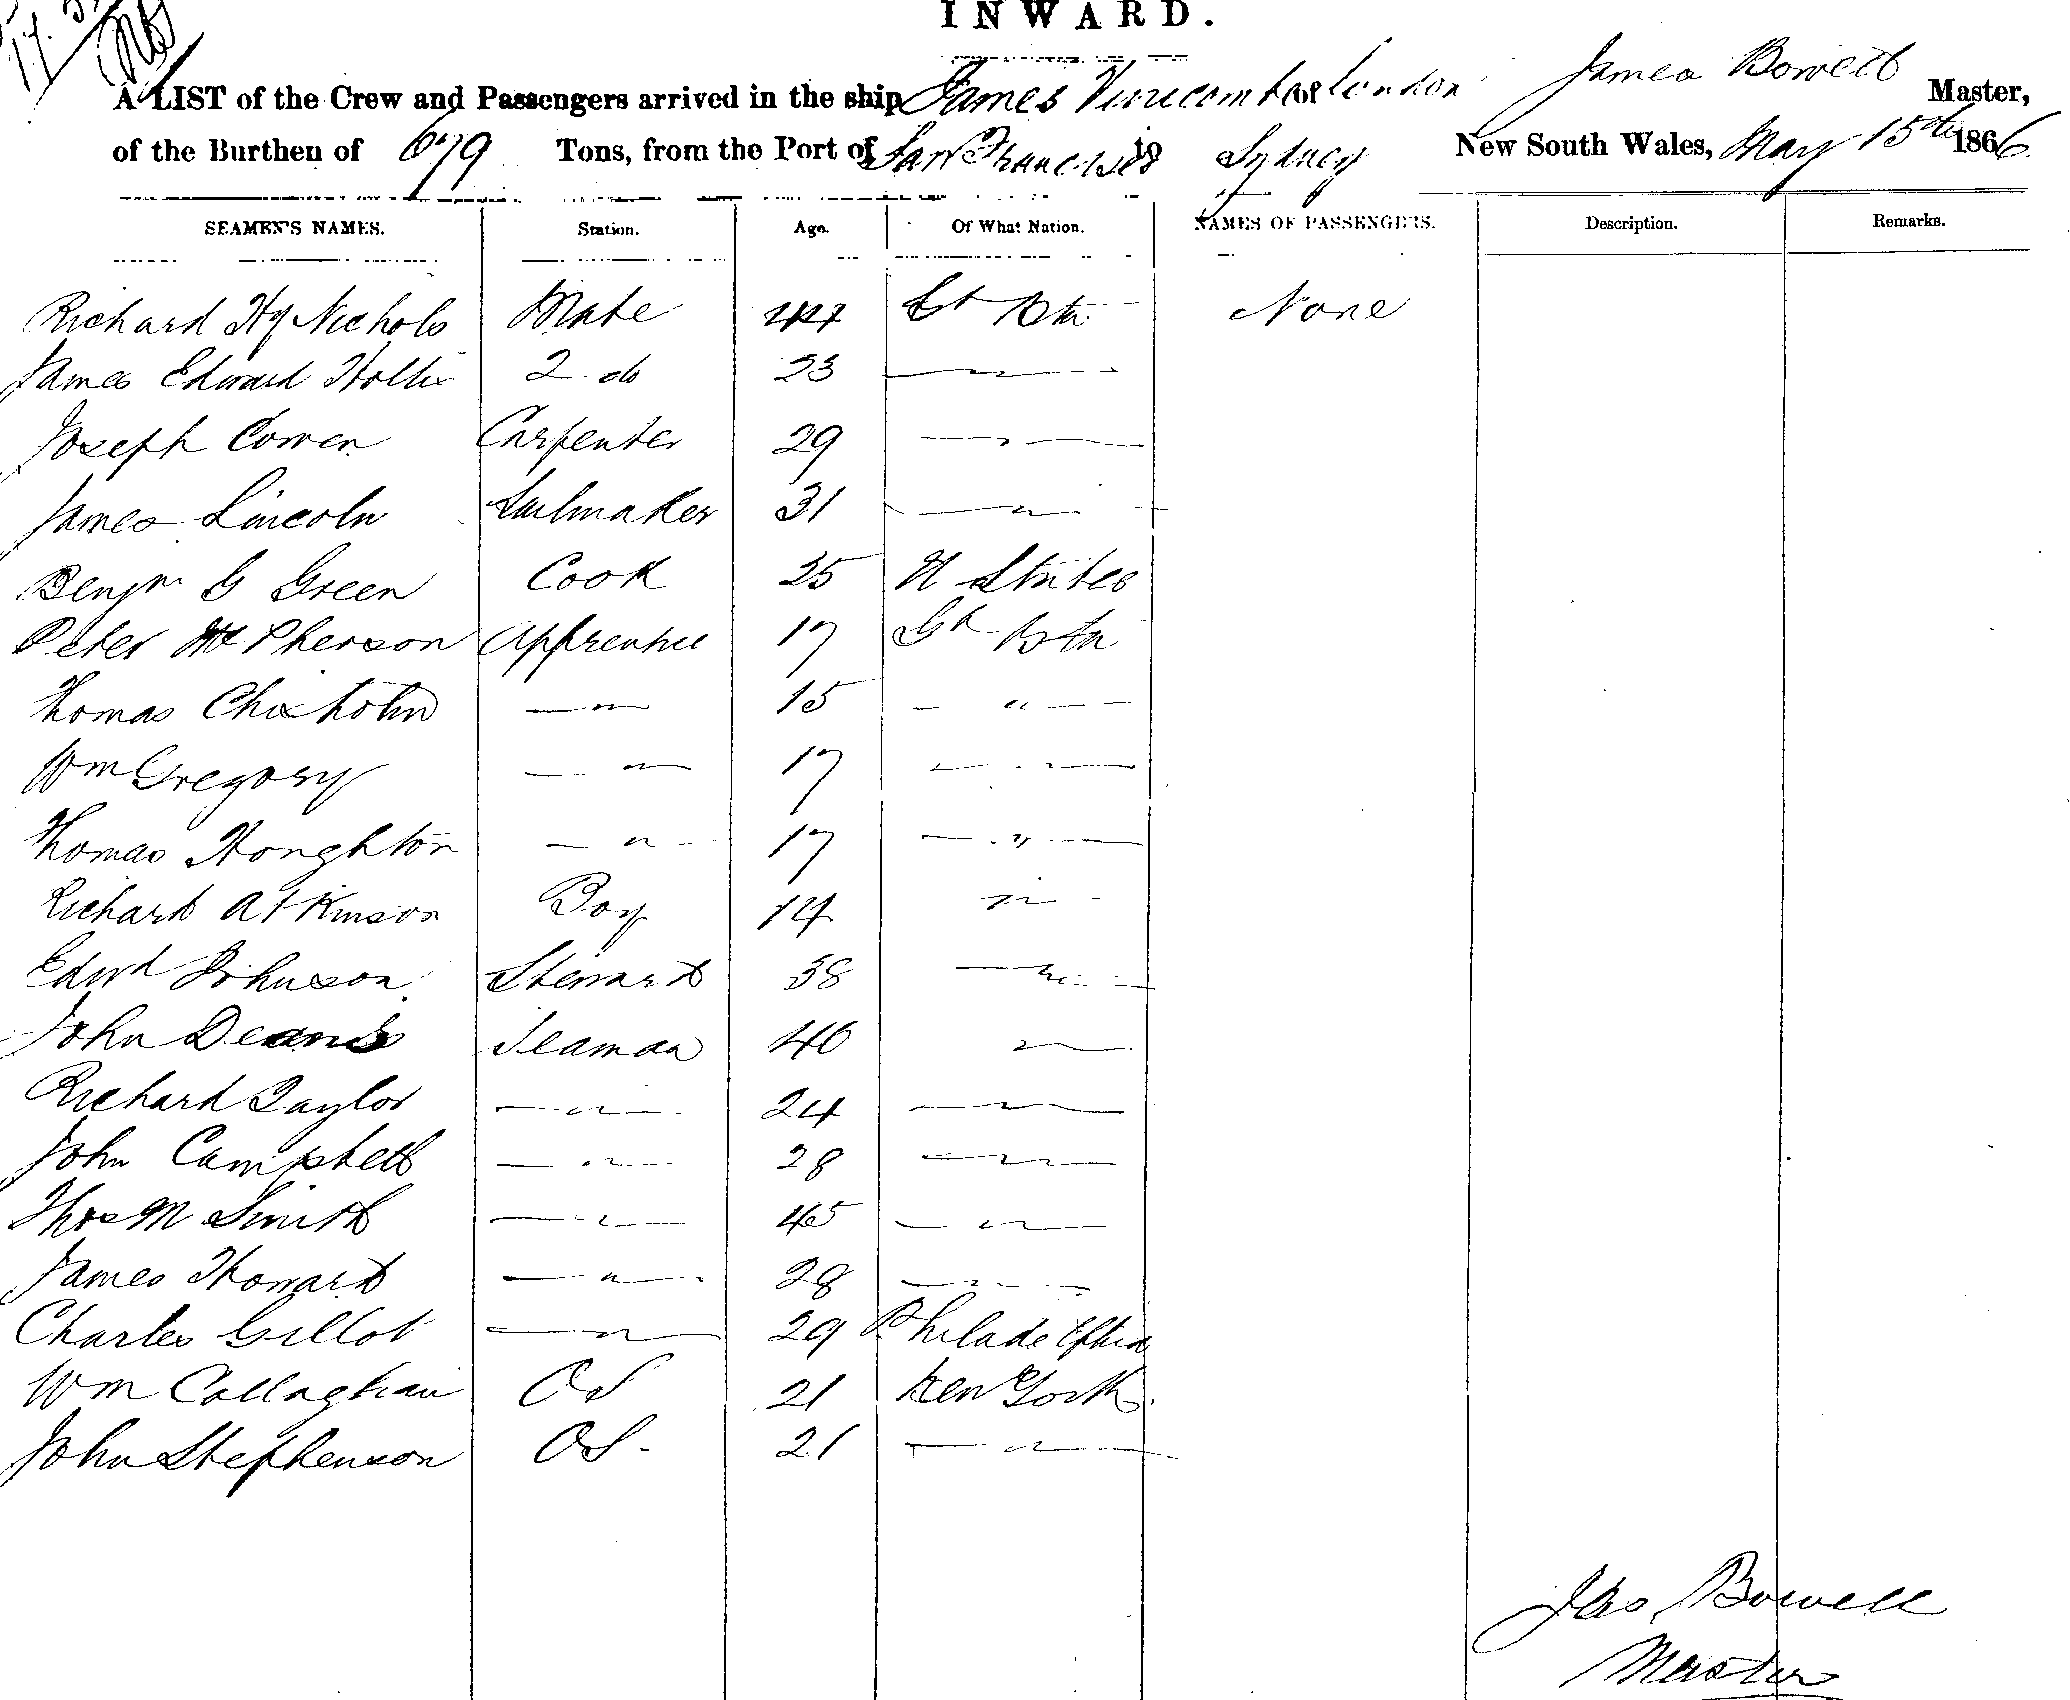 INWARD.
A LIST of the Crew and Passengers arrived in the ship James Vinicombe of London James Bowell Master,
of the Burthen of 679 Tons, from the Port of San Francisco to Sydney New South Wales, May 15th 1866
SEAMEN'S NAMES. Station. Age. Of What Nation. NAMES OF PASSENGERS. Description. Remarks.
Richard Hy Nichols Mate 44 Gt Btn None
James Edward Hollis 2 do 23 — " —
Joseph Cowen Carpenter 29 — " —
James Lincoln Sailmaker 31 — " —
Benjn G Green Cook 25 U States
Peter McPherson Apprentice 17 Gt Btn
Thomas Chisholm — " 15 — " —
Wm Gregory — " 17 — " —
Thomas Houghton — " 17 — " —
Richard Atkinson Boy 14 " —
Edwd Johnson Steward 38 — " —
John Deans Seaman 40 " —
Richard Taylor — " — 24 — " —
John Campbell — " — 28 — " —
Thos M Smith — " — 45 — " —
James Howard — " — 28 — " —
Charles Gillot — " — 29 Philadelphia
Wm Callaghan OS 21 New York
John Stephenson OS 21 — " —
Jas Bowell
Master